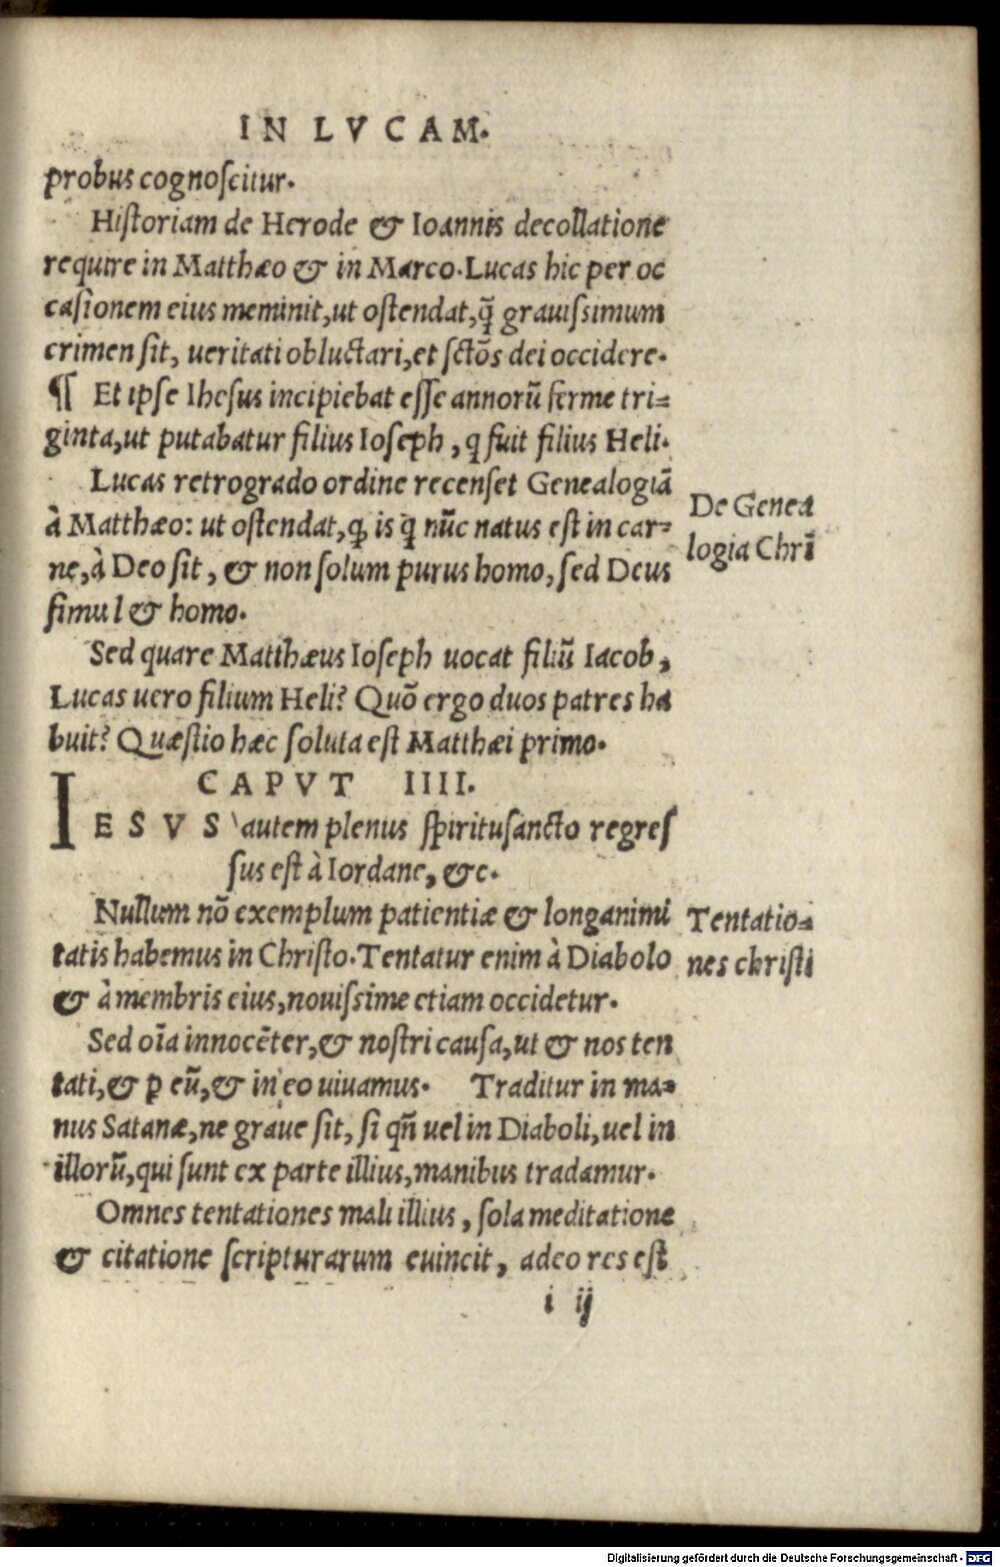 IN LVCAM.
probus cognoſcitur.
Hiſtoriam de Herode & Ioannis decollatione
require in Matthæo & in Marco. Lucas hic per oc
caſionem eius meminit, ut oſtendat, q̃ grauiſsimum
crimen ſit, ueritati obluctari, et ſctõs dei occidere.
¶ Et ipſe Iheſus incipiebat eſſe annorũ ferme tri=
ginta, ut putabatur filius Ioſeph, q fuit filius Heli.
Lucas retrogrado ordine recenſet Genealogiã
à Matthæo: ut oſtendat, ꝙ is q̃ nũc natus eſt in car=
ne, à Deo ſit, & non ſolum purus homo, ſed Deus
ſimul & homo.
De Genea
logia Chrĩ
Sed quare Matthæus Ioſeph uocat filiũ Iacob,
Lucas uero filium Heli? Quõ ergo duos patres ha
buit? Quæſtio hæc ſoluta eſt Matthæi primo.
CAPVT IIII.
IESVS autem plenus ſpirituſancto regreſ
ſus eſt à Iordane, &c.
Nullum nõ exemplum patientiæ & longanimi
tatis habemus in Chriſto. Tentatur enim à Diabolo
& à membris eius, nouiſsime etiam occidetur.
Tentatio=
nes chriſti
Sed oĩa innocẽter, & noſtri causa, ut & nos ten
tati, & p eũ, & in eo uiuamus. Traditur in ma=
nus Satanæ, ne graue ſit, ſi qñ uel in Diaboli, uel in
illorũ, qui ſunt ex parte illius, manibus tradamur.
Omnes tentationes mali illius, ſola meditatione
& citatione ſcripturarum euincit, adeo res eſt
i ij
Digitalisierung gefördert durch die Deutsche Forschungsgemeinschaft - DFG